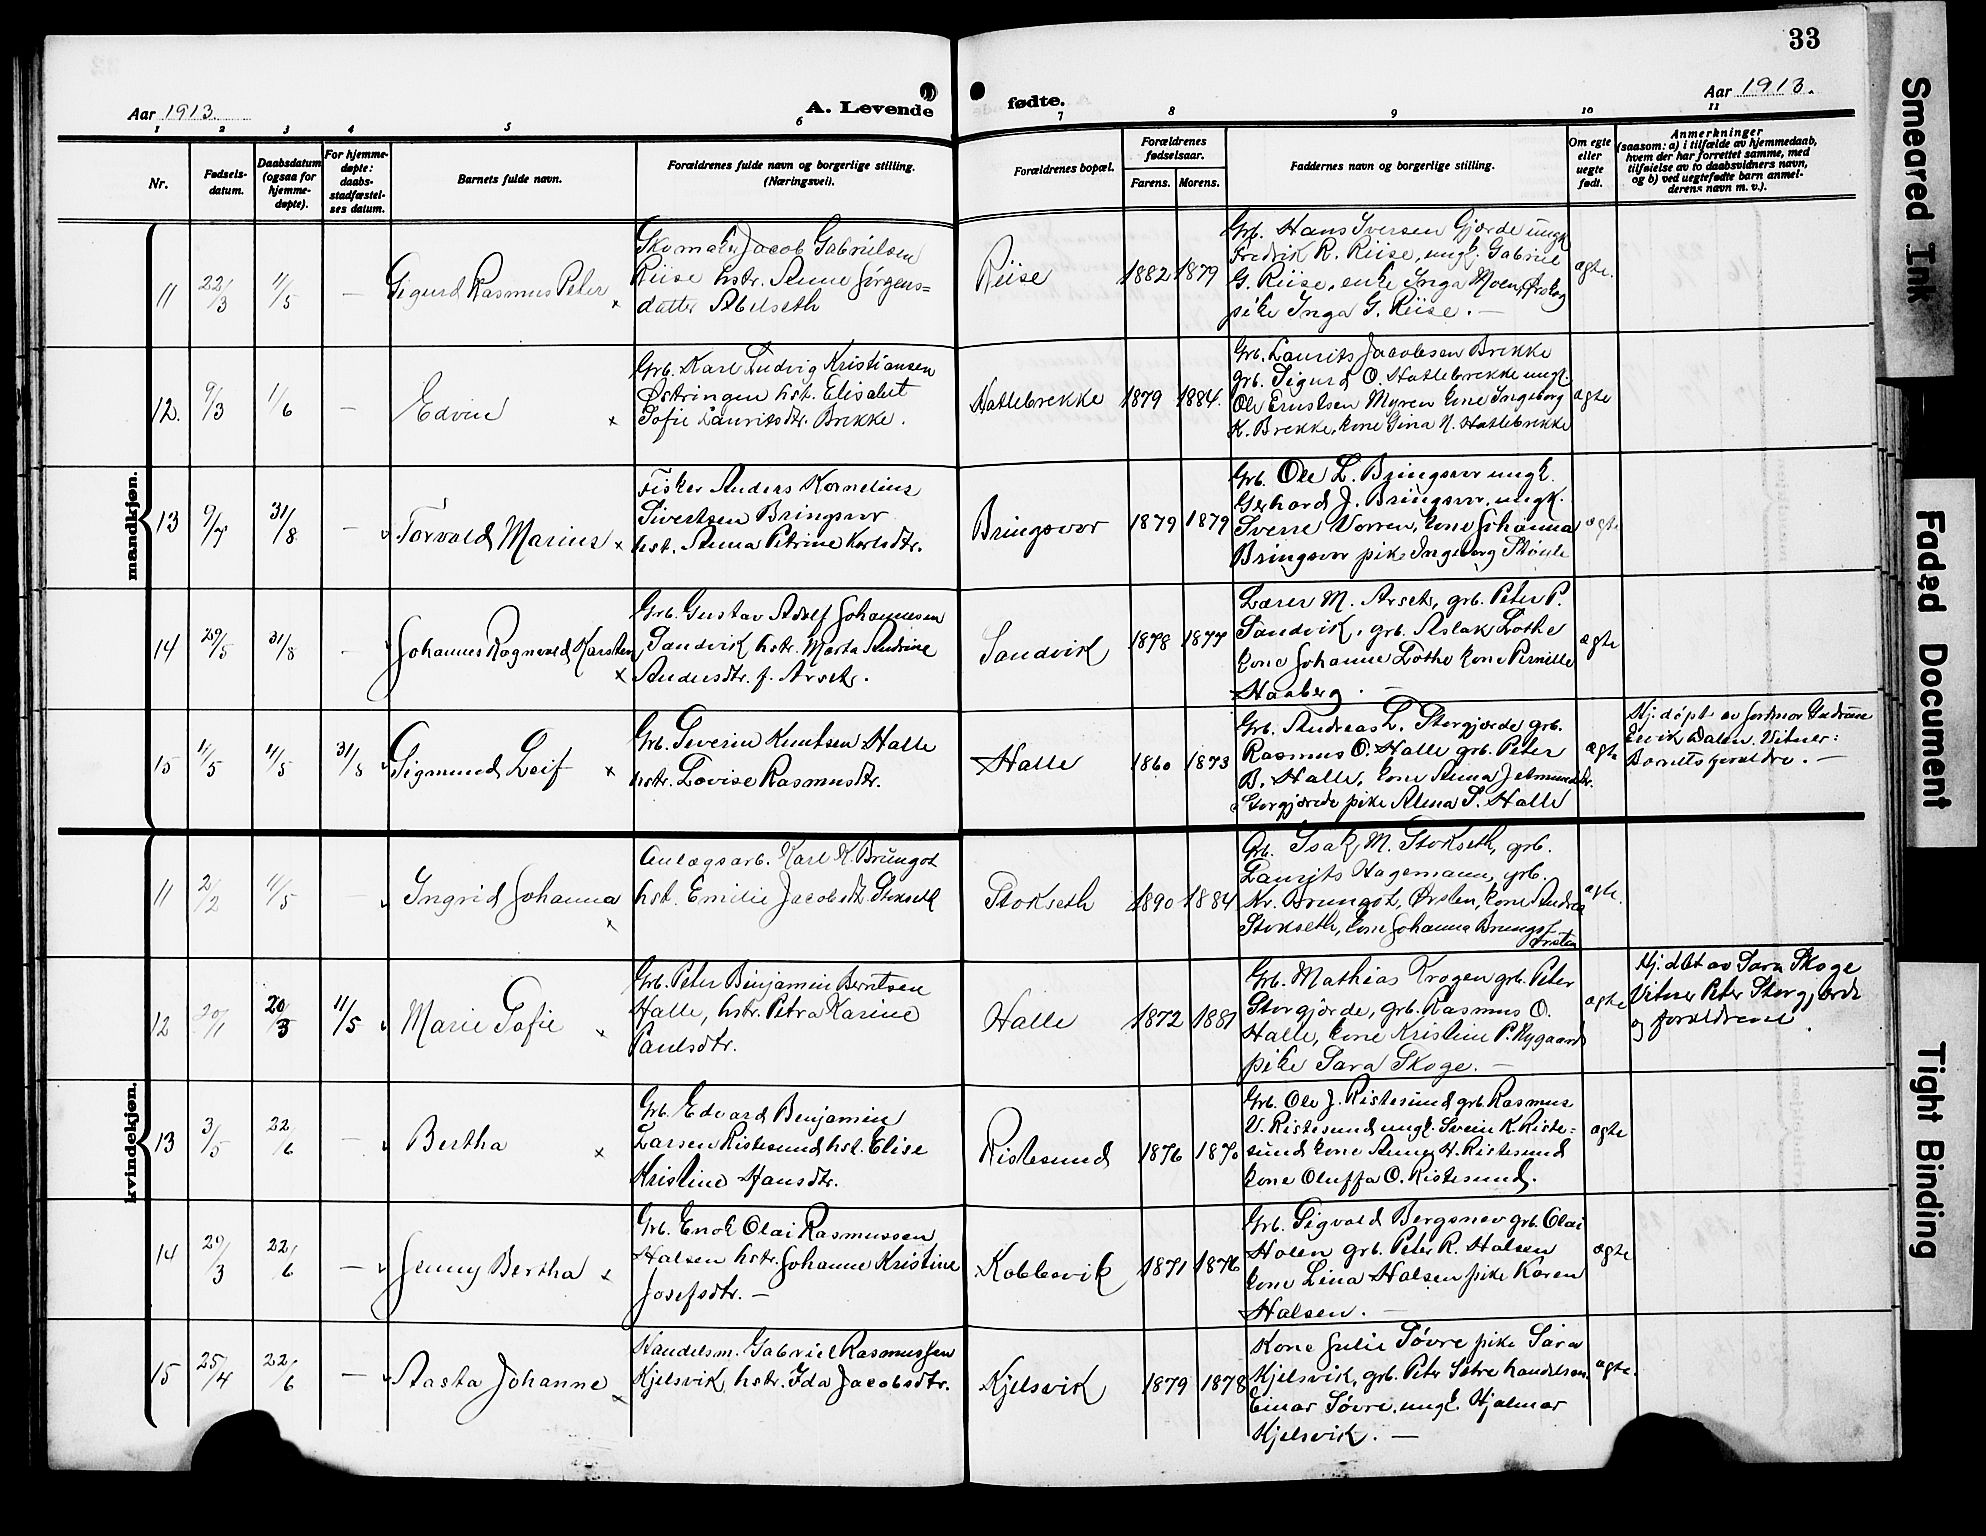 33
Aar 1913.
A. Levende
fødte.
Aar 1913.
1 2 3 4 5 6 7 8 9 10 11
Nr.
Fødsels-
datum.
Daabsdatum
(ogsaa for
hjemme-
døpte).
For hjemme-
døpte:
daabs-
stadfæstel-
ses datum.
Barnets fulde navn.
Forældrenes fulde navn og borgerlige stilling.
(Næringsvei).
Forældrenes bopæl.
Forældrenes
fødselsaar.
Farens. Morens.
Faddernes navn og borgerlige stilling.
Om egte
eller
uegte
født.
Anmerkninger
(saasom: a) i tilfælde av hjemmedaab,
hvem der har forrettet samme, med
tilføielse av to daabsvidners navn,
og b) ved uegtefødte barn anmel-
derens navn m. v.).
mandkjøn.
11 22/3 11/5 — Sigurd Rasmus Peter x
Skomaker Jacob Gabrielsen
Riise hstr. Anne Jørgens=
datter Abelseth
Riise 1882 1879
Grb. Hans Iversen Gjørde ungk.
Fredrik R. Riise, ungk. Gabriel
G. Riise, enke Inga Moen, Ørskog
pike Inga G. Riise. —
ægte.
12. 9/3 1/6 — Edvin x
Grb. Karl Ludvig Kristiansen
Østringen hst. Elisabet
Sofie Lauritsdtr. Brekke.
Hatlebrekke 1879 1884.
Grb. Laurits Jacobsen Brekke
grb. Sigurd O. Hatlebrekke ungk.
Ole Ernstsen Myren kone Ingeborg
K. Brekke, kone Gina N. Hatlebrekke
ægte
13 9/7 31/8 — Torvald Marius x
Fisker Anders Kornelius
Sivertsen Bringsvor
hst. Anna Petrine Karlsdtr.
Bringsvor 1879 1879
Grb. Ole L. Bringsvor ungk.
Gerhard J. Bringsvor, ungk.
Sverre Vorren, kone Johanna
Bringsvor pike Ingeborg
ægte
14 29/5 31/8 — Johannes Ragnvald Karsten x
Grb. Gustav Adolf Johannesen
Sandvik hstr. Marta Andrine
Andersdtr. f. Arset.
Sandvik 1878 1877
Lærer M. Arset, grb. Peter P.
Sandvik, grb. Aslak Lothe
kone Johanne Lothe kone Pernille
Haaberg. —
ægte
15 11/5 11/5 31/8 Sigmund Leif x
Grb. Severin Knutsen Halle
hstr. Lovise Rasmusdtr.
Halle 1860 1873
Grb. Andreas L. Storgjørde grb.
Rasmus O. Halle grb. Peter
B. Halle, kone Anna Jetmundsdtr.
Storgjørde pike Alma S. Halle
ægte
Hj. døpt av jordmor Gudrune
Ervik Dalen. Vitner:
Barnets forældre. —
kvindekjøn.
11 2/2 11/5 — Ingrid Johanna x
Anlægsarb. Karl K. Brungot
hst. Emilie Jacobsdt. Stokseth
Stokseth 1890 1884
Grb. Isak M. Stokseth, grb.
Laurits Hagemann, grb.
Kr. Brungot, Ørsten, kone Andrea
Stokseth, kone Johanna Brungot
Ørsten
ægte.
12 20/1 20/3 11/5 Marie Sofie x
Grb. Peter Benjamin Berntsen
Halle, hstr. Petra Karine
Paulsdtr.
Halle 1872 1881
Grb. Mathias Krogen grb. Peter
Storgjørde, grb. Rasmus O.
Halle, kone Kristine P. Nygaard
pike Sara Skoge. —
ægte
Hj. døbt av Sara Skoge
Vitner Peter Storgjørde
og forældrene.
13 3/5 22/6 — Bertha x
Grb. Edvard Benjamin
Larsen Ristesund hst. Elise
Kristine Hansdtr.
Ristesund 1876 1870
Grb. Ole J. Ristesund grb. Rasmus
V. Ristesund ungk. Svein K. Riste=
sund kone Anna H. Ristesund
kone Oluffa O. Ristesund.
ægte
14 29/3 22/6 — Jenny Bertha x
Grb. Enok Olai Rasmussen
Halsen hstr. Johanne Kristine
Josefsdtr. —
Koblevik 1871 1876
Grb. Sigvald Bergsnev grb. Olai
Holen grb. Peter R. Halsen
kone Lina Halsen pike Karen
Halsen. —
ægte
15 25/4 22/6 — Aasta Johanne x
Handelsm. Gabriel Rasmussen
Kjelsvik, hstr. Ida Jacobsdtr.
Kjelsvik 1879 1878
Kone Julie Søvre pike Sara
Kjelsvik, grb. Peter Sætre handelsm.
Einar Søvre, ungk. Hjalmar
Kjelsvik. —
ægte.
Smeared Ink
Faded Document
Tight Binding